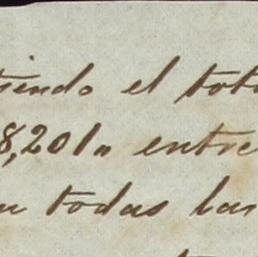 tiendo el tota
8,201„ entre
n todas las